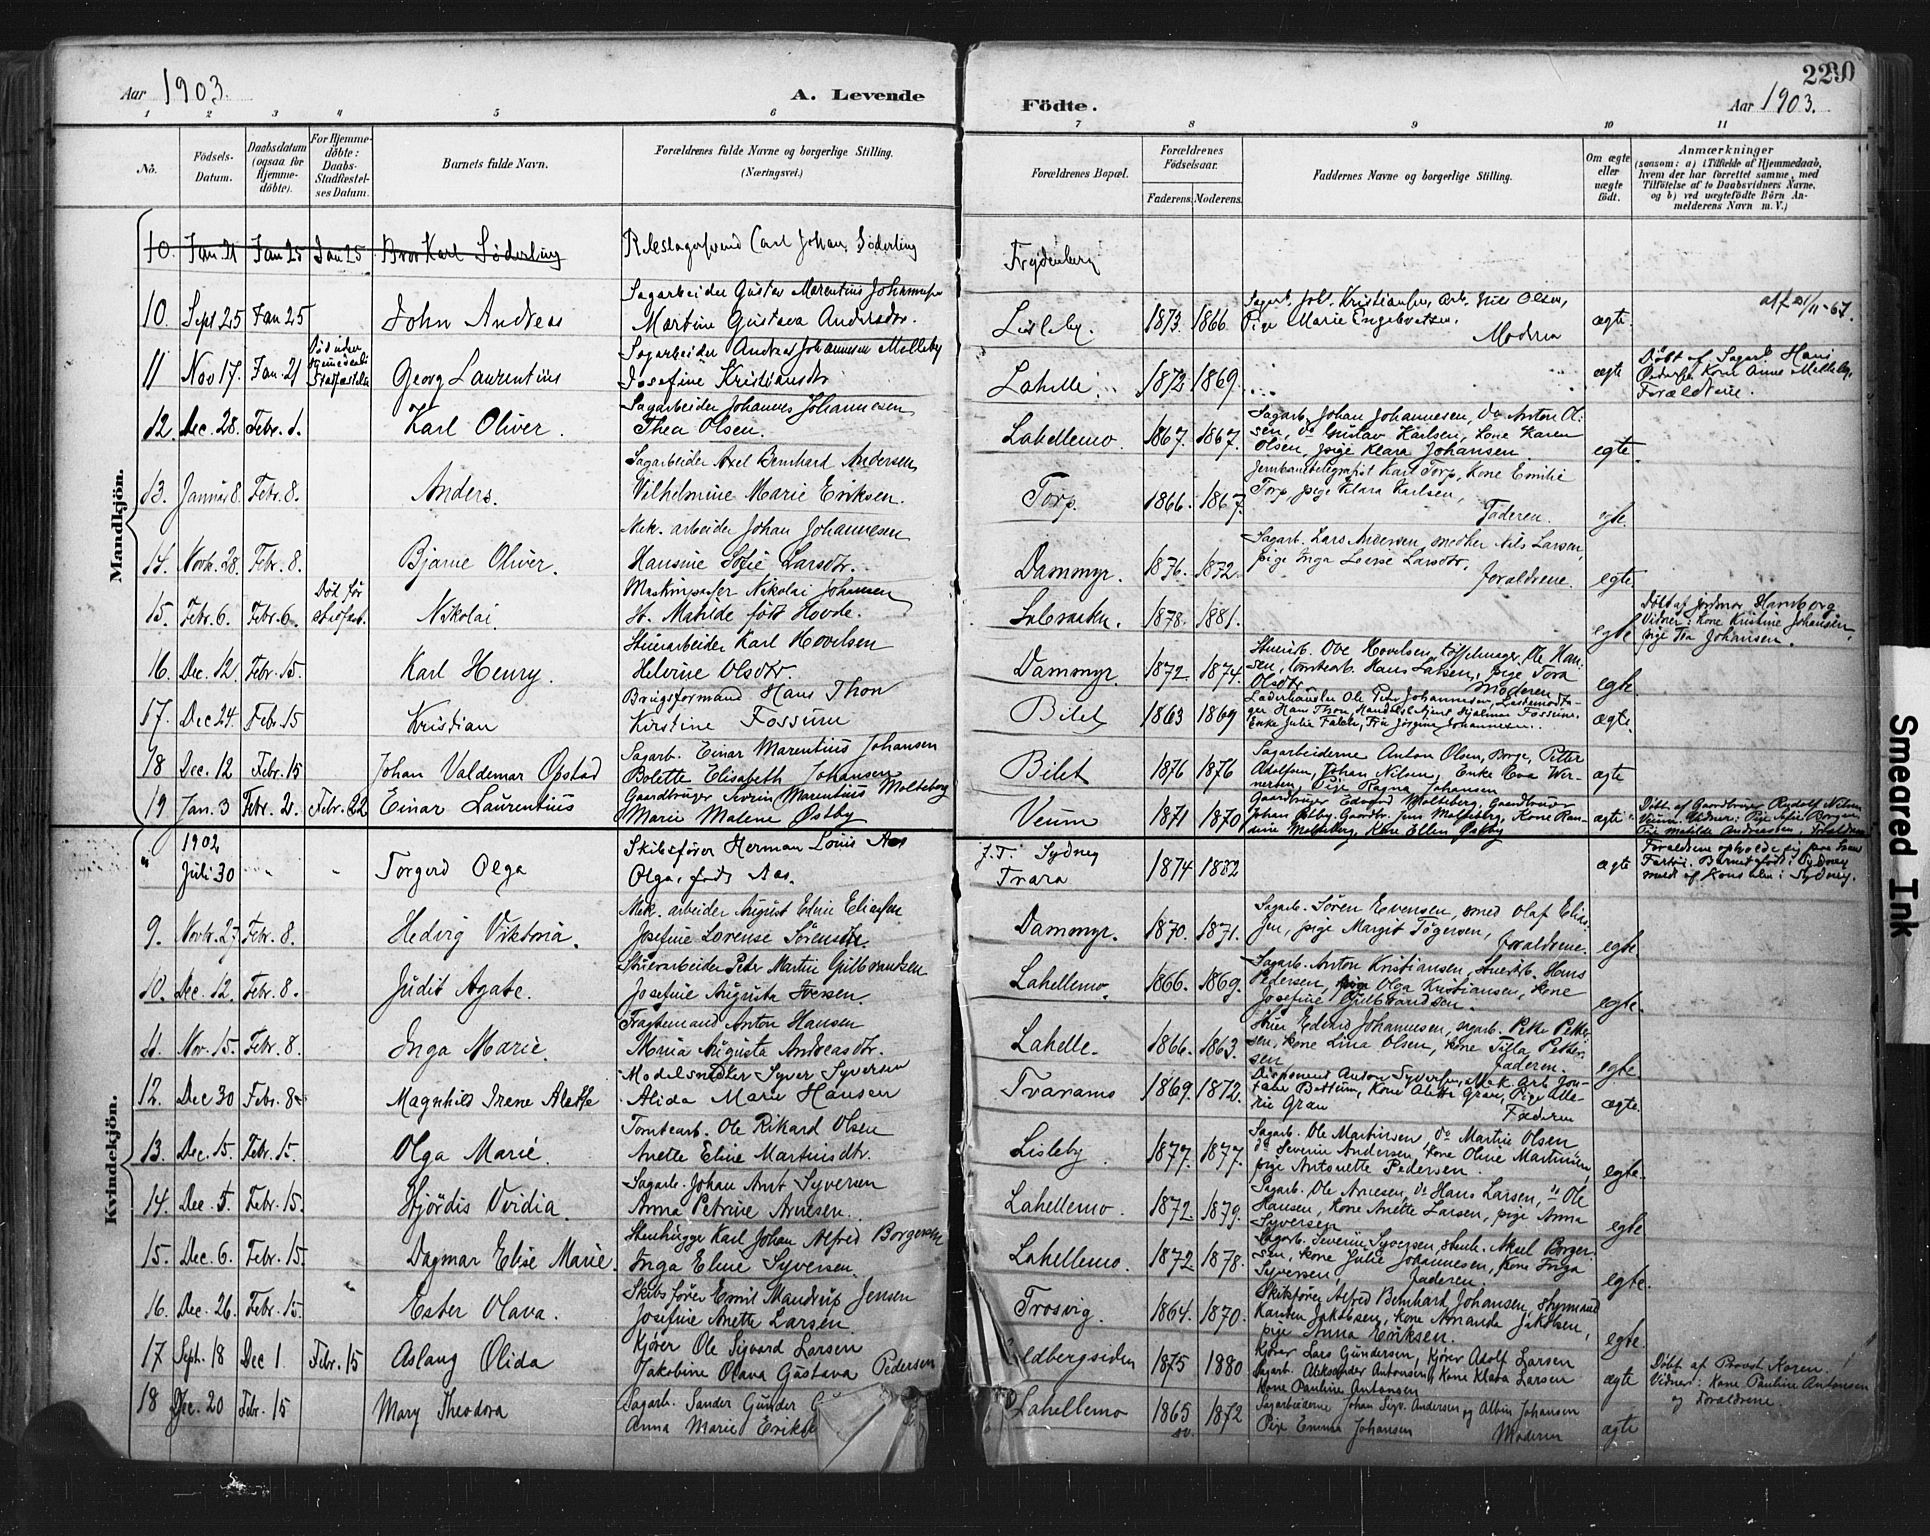 Aar 1903.
A. Levende
Födte.
220
Aar 1903.
1 2 3 4 5 6 7 8 9 10 11
No.
Födsels-Datum.
Daabsdatum (ogsaa for Hjemme-döbte).
For Hjemme-döbte: Daabs-Stadfæstel-ses Datum.
Barnets fulde Navn.
Forældrenes fulde Navne og borgerlige Stilling. (Næringsvei.)
Forældrenes Bopæl.
Forældrenes Födselsaar.
Faderens. Moderens.
Faddernes Navne og borgerlige Stilling.
Om ægte eller uægte födt.
Anmærkninger (saasom: a) i Tilfælde af Hjemmedaab, hvem der har forrettet samme, med Tilföielse af to Daabsvidners Navne, og b) ved uægtefödte Börn An-melderens Navn m. V.)
Mandkjön.
10. Jan 21 Jan 25 Jan 25 Bror Karl Söderling Carl Johan Söderling Frydenberg
10. Sept 25 Jan 25 John Andreas Sagarbeider Gustav Marentius Johannesen
Martine Gustava Andersdtr. Lisleby. 1873. 1866. Pige Marie Engebretsen. Moderen ægte.
11 Nov 17. Jan. 21 Georg Laurentius Sagarbeider Andreas Johannesen Melleby
Josefine Kristiansdtr Lahelle 1872 1869. ægte Döbt af Sagarb. Hans
Kone Anne Melleby.
Forældrene.
12. Dec. 28. Febr. 1. Karl Oliver. Sagarbeider Johannes Johannesen
Thea Olsen. Lahellemo. 1867. 1867. Sagarb. Johan Johannesen, do Anton Ol-
sen, do Gustav Karlsen, kone Karen
Olsen, pige Klara Johansen. egte.
13. Januar 8. Febr. 8. Anders. Sagarbeider Axel Bernhard Andersen
Vilhelmine Marie Eriksen. Torp. 1866. 1867. Jernbanetelegrafist Karl Torp, Kone Emilie
Torp, pige Klara Karlsen, Faderen. egte.
14. Novb. 28. Febr. 8. Bjarne Oliver. Mek. arbeider Johan Johannesen
Hansine Sofie Larsdtr. Dammyr. 1876. 1872. Sagarb. Lars Andersen, snedker Nils Larsen,
pige Inga Lovise Larsdtr, foraldrene. egte
15. Febr. 6. Febr. 6. Död før stadfæst. Nikolai. Maskinpasser Nikolai Johansen
H. Matilde født Hovde. 1878. 1881. egte Döbt af jordmor Hamborg
Vidner: Kone Kristine Johansen,
pige Tea Johansen.
16. Dec. 12. Febr. 15. Karl Henry. Stuerarbeider Karl Hovelsen
Helvine Olsdtr. Dammyr 1872. 1874. Stuerarb. Ove Hovelsen, Ole Han-
sen, tomtearb. Hans Larsen, pige Tora
Olsdtr Moderen egte
17. Dec 24. Febr. 15 Kristian Brugsformand Hans Thon
Kirstine Fossum Bilet 1863 1869 Ole Petr. Johannesen,
Hans Thon, Hjalmar Fossum.
Enke Julie Falch, Fru Jörgine Johannesen. ægte.
18 Dec. 12 Febr. 15 Johan Valdemar Opstad Sagarb. Einar Marentius Johansen
Bolette Elisabeth Johansen Bilet 1876 1876 Sagarbeiderne Anton Olsen, Borge, Petter
Adolfsen, Johan Nilsen, Enke Eva Wer-
nersen, Pige Ragna Johansen ægte
19 Jan. 3 Febr. 2. Febr. 22 Einar Laurentius Gaardbruger Severin Marentius Molteberg
Marie Malene Østby Veum 1871 1870 Gaardbruger Edvard Molteberg, Gaardbruger
Johan Østby, Gaardbr. Jens Molteberg, Kone Ran-
dine Molteberg, Kone Ellen Østby ægte Döbt af Gaardbruger Rudolf Nilsen
Veum. Vidner: Pige Sofie Borgen
Pige Matilde Andreassen, Forældrene
Kvindekjön.
" 1902 Juli 30 " " Torgerd Olga Skibsfører Herman Louis Aas
Olga, født Aas. J.T. Sydney
Trara 1874 1882 ægte Forældrene opholde sig paa
Fartöi. Barnet födt i Sydney
i Sydney.
9. Novb. 27 Febr. 8. Hedvig Viktoria. Mek. arbeider August Edvin Eliassen
Josefine Lorense Sörensdtr. Dammyr. 1870. 1871. Sagarb. Sören Evensen, smed Olaf Elias-
sen, pige Margit Tögersen, foraldrene. egte.
10. Dec. 12. Febr. 8. Judit Agate. Stuerarbeider Peter Martin Gulbrandsen
Josefine Augusta Iversen. Lahellemo. 1866. 1869. Sagarb. Anton Kristiansen, Stuerarb. Hans
Pedersen, pige Olga Kristiansen, kone
Josefine Gulbrandsen. egte.
11. Nov. 15. Febr. 8. Inga Marie. Fragtemand Anton Hansen
Maria Augusta Andreasdtr. Lahelle. 1866. 1863. Stuer Edvard Johannesen, sagarb. Petter Petter-
sen, kone Lina Olsen, kone Tilla Petter-
sen Faderen. egte
12. Dec 30 Febr. 8 Magnhild Irene Alette Modelsnedker Syver Syversen
Alida Marie Hansen Traramo 1869. 1872. Disponent Anton Syversen, Mek. Arb. Gun-
Battum, Kone Alette Gran, Pige Ma-
rie Gran Faderen ægte.
13. Dec. 15. Febr. 15. Olga Marie. Tomtearb. Ole Rikard Olsen
Anette Eline Martinisdtr. Lisleby. 1877. 1877. Sagarb. Ole Martinsen, do Martin Olsen
do Severin Andersen, kone Oline Martinsen,
pige Antonette Pedersen. egte.
14. Dec. 5. Febr. 15. Hjördis Viridia. Sagarb. Johan Arnt Syversen
Anna Petrine Arnesen. Lahellemo. 1872. 1879. Sagarb. Ole Arnesen, do Hans Larsen, do Ole
Hansen, kone Anette Larsen, pige Anna
Syversen egte
15. Dec. 6. Febr. 15. Dagmar Elise Marie. Stenhugger Karl Johan Alfred Borgersen
Inga Eline Syversen. Lahellemo. 1872 1878. Sagarb. Severin Syversen, stenh. Aksel Borger-
sen, kone Julie Johannesen, kone Inga
Syversen, faderen. egte.
16. Dec. 26. Febr. 15. Ester Olava. Skibsfører Emil Mandrup Jensen
Josefine Anette Larsen. Trosvig. 1864. 1870. Skibsfører Alfred Bernhard Johansen, styrmand
Karsten Jakobsen, kone Amanda Jakobsen,
pige Anna Eriksen. egte.
17 Sept. 18 Dec 1. Febr. 15 Aslaug Olida Kjører Ole Sigvard Larsen
Jakobine Olava Gustava Pedersen 1875 1880 Kjører Lars Gundersen, Kjører Adolf Larsen
Sagarb. Aleksander Antonsen, Kone Klara Larsen
Kone Pauline Antonsen ægte Döbt af Provst Koren.
Vidner: Kone Pauline Antonsen
og Forældrene.
18 Dec. 20 Febr. 15 Mary Theodora Sagarb. Sander Gunder
Anna Marie Lahellemo 1865 1872 Sagarbeiderne Johan Sigv. Andersen og Albin Johansen
Pige Emma Johansen Moderen ægte
Smeared Ink